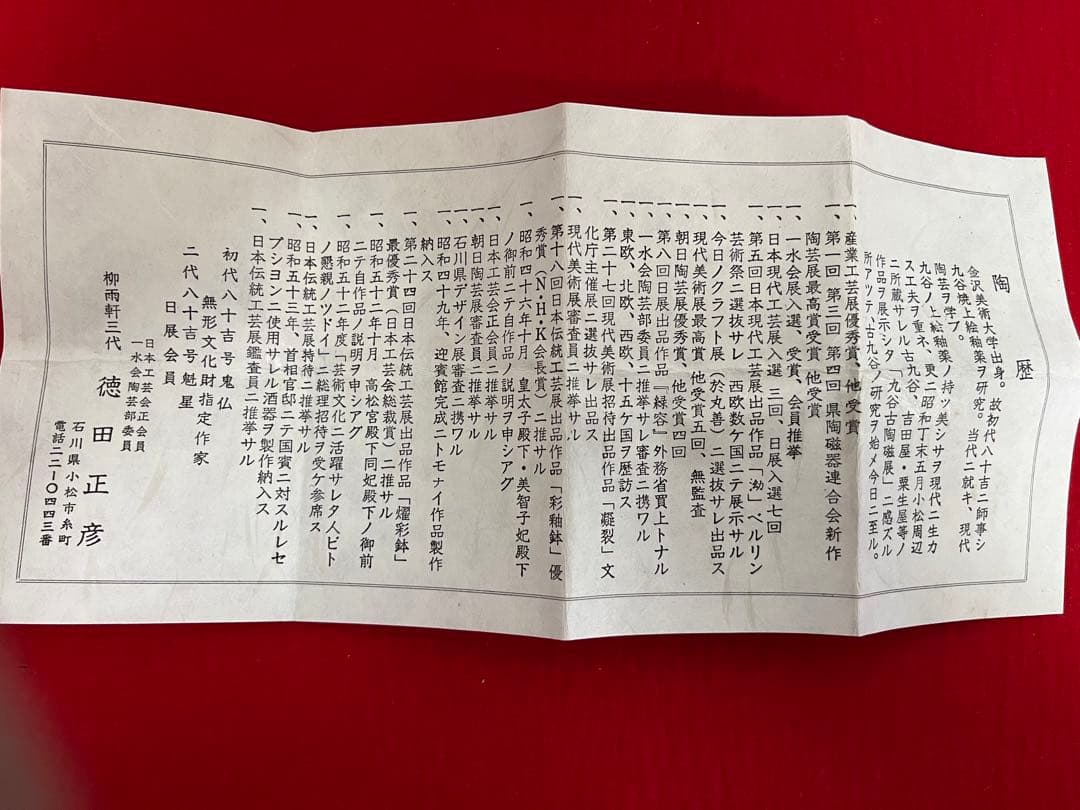 陶歴
金沢美術大学出身。故初代八十吉ニ師事シ
九谷焼上絵釉薬ヲ研究。当代ニ就キ、現代
陶芸ヲ学ブ。
九谷ノ上絵釉薬ノ持ツ美シサヲ現代ニ生カ
ス工夫ヲ重ネ、更ニ昭和丁末五月小松周辺
ニ所蔵サレル古九谷、吉田屋・粟生屋等ノ
作品ヲ展示シタ「九谷古陶磁展」ニ感ズル
所アツテ古九谷ノ研究ヲ始メ今日ニ至ル。
一、産業工芸展優秀賞、他受賞
一、第一回 第三回 第四回 県陶磁器連合会新作
陶芸展最高賞受賞、他受賞
一、一水会展入選、受賞、会員推挙
一、日本現代工芸展入選 三回、日展入選七回
一、第五回日本現代工芸展出品作品「泑」ベルリン
芸術祭ニ選抜サレ 西欧数ケ国ニテ展示サル
一、今日ノクラフト展（於丸善）ニ選抜サレ出品ス
一、現代美術展最高賞、他受賞五回、無監査
一、朝日陶芸展優秀賞、他受賞四回
一、第八回日展出品作品『緑容』外務省買上トナル
一、一水会陶芸部委員ニ推挙サレ審査ニ携ワル
一、東欧、北欧、西欧、十五ケ国ヲ歴訪ス
一、第二十七回現代美術展招待出品作品「凝裂」文
化庁主催展ニ選抜サレ出品ス
一、現代美術展審査員ニ推挙サル
一、第十八回日本伝統工芸展出品作品「彩釉鉢」優
秀賞（N・H・K会長賞）ニ推サル
一、昭和四十六年十月 皇太子殿下・美智子妃殿下
ノ御前ニテ自作品ノ説明ヲ申シアグ
一、日本工芸会正会員ニ推挙サル
一、朝日陶芸展審査員ニ推挙サル
一、石川県デザイン展審査ニ携ワル
一、昭和四十九年、迎賓館完成ニトモナイ作品製作
納入ス
一、第二十四回日本伝統工芸展出品作品「燿彩鉢」
最優秀賞（日本工芸会総裁賞）ニ推サル
一、昭和五十二年十月 高松宮殿下同妃殿下ノ御前
ニテ自作品ノ説明ヲ申シアグ
一、昭和五十二年度「芸術文化ニ活躍サレタ人ビト
ノ懇親ノツドイ」ニ総理招待ヲ受ケ参席ス
一、日本伝統工芸展特待ニ推挙サル
一、昭和五十三年、首相官邸ニテ国賓ニ対スルレセ
プシヨンニ使用サレル酒器ヲ製作納入ス
一、日本伝統工芸展鑑査員ニ推挙サル
初代八十吉号鬼仏
無形文化財指定作家
二代八十吉号魁星
日展会員
柳雨軒三代 徳田正彦
日本工芸会正会員
一水会陶芸部委員
石川県小松市糸町
電話二二-〇四四三番